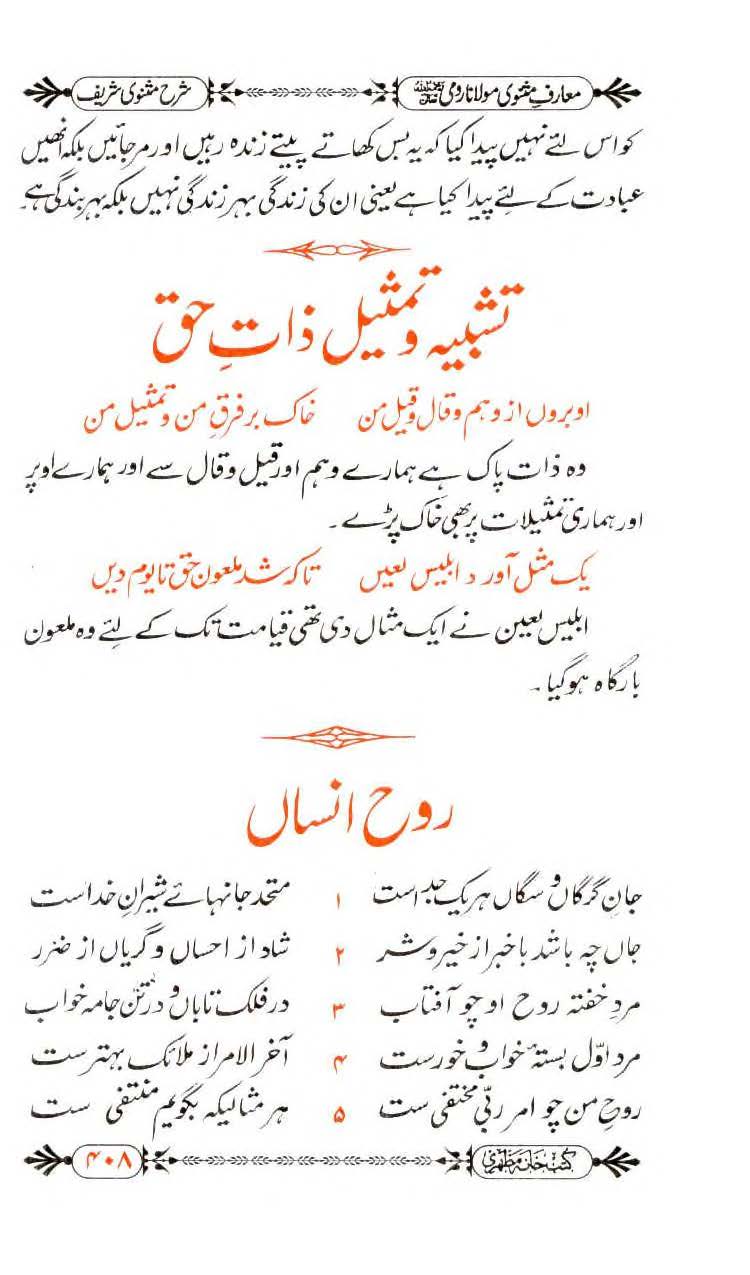 معارفِ مثنوی مولانا رومی رحمۃ اللہ علیہ شرح مثنوی شریف
کو اس لئے نہیں پیدا کیا کہ یہ بس کھاتے پیتے زندہ رہیں اور مر جائیں بلکہ انھیں
عبادت کے لئے پیدا کیا ہے یعنی ان کی زندگی بہر زندگی نہیں بلکہ بہر بندگی ہے۔
تشبیہ و تمثیل ذاتِ حق
او بروں از وہم و قال و قیل من خاک بر فرقِ من و تمثیل من
وہ ذات پاک ہے ہمارے وہم اور قیل و قال سے اور ہمارے اوپر
اور ہماری تمثیلات پر بھی خاک پڑے۔
یک مثل آورد ابلیس لعیں تا کہ شد ملعون حق تا یوم دیں
ابلیس لعین نے ایک مثال دی تھی قیامت تک کے لئے وہ ملعون
بارگاہ ہو گیا۔
روح انساں
جانِ گرگاں و سگاں ہر یک جداست ۱ متحد جانہائے شیرانِ خداست
جاں چہ باشد باخبر از خیر و شر ۲ شاد از احساں و گریاں از ضرر
مردِ خفتہ روح او چو آفتاب ۳ در فلک تاباں و در تن جامہ خواب
مرد اوّل بستۂ خواب و خورست ۴ آخر الامر از ملائک بہتر ست
روحِ من چو امر ربّی مختفی ست ۵ ہر مثالیکہ بگویم منتفی ست
کتب خانہ مظہری ۴۰۸